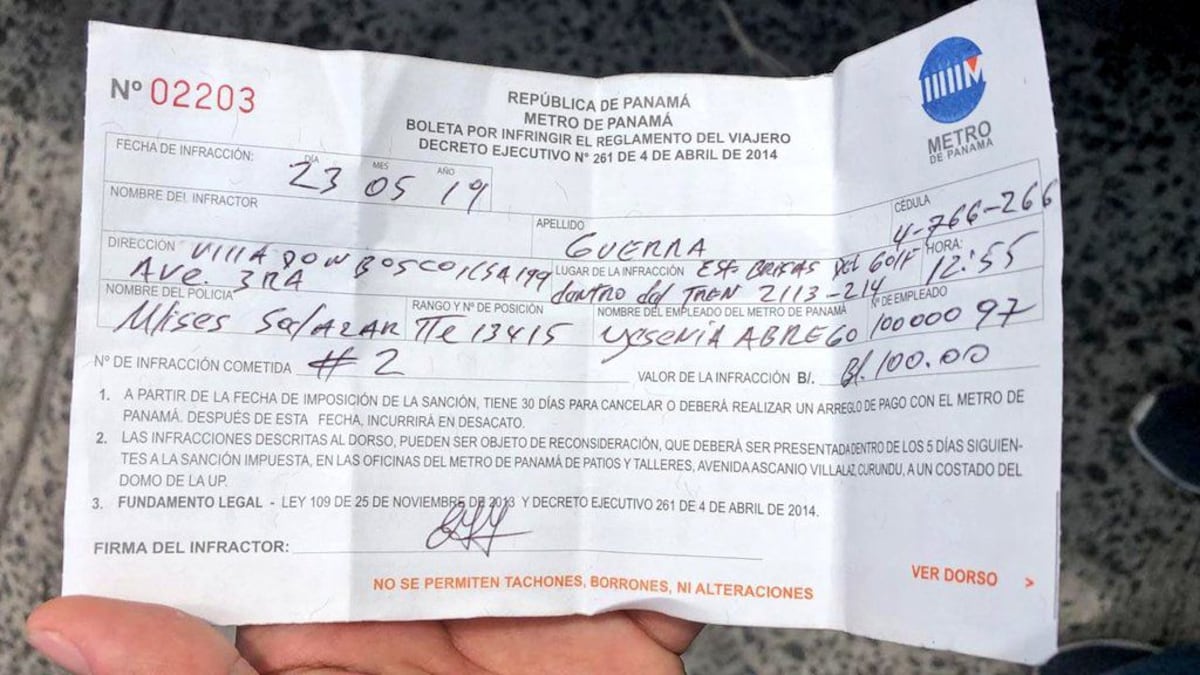 Nº 02203
REPÚBLICA DE PANAMÁ
METRO DE PANAMÁ
BOLETA POR INFRINGIR EL REGLAMENTO DEL VIAJERO
DECRETO EJECUTIVO N° 261 DE 4 DE ABRIL DE 2014
METRO
DE PANAMÁ
FECHA DE INFRACCIÓN: DÍA MES AÑO
23 05 19
NOMBRE DEL INFRACTOR
APELLIDO
GUERRA
CÉDULA
4-766-266
DIRECCIÓN VIIIA DON BOSCO
AVe. 3RA
LUGAR DE LA INFRACCIÓN EST. BRISAS DEL GOLF
dentro del TREN 2113-214
HORA:
12:55
NOMBRE DEL POLICIA
Mises SalAZAR
RANGO Y Nº DE POSICIÓN
TTe 13415
NOMBRE DEL EMPLEADO DEL METRO DE PANAMÁ
YESENIA ABREGO
Nº DE EMPLEADO
10000097
Nº DE INFRACCIÓN COMETIDA # 2
VALOR DE LA INFRACCIÓN B/. B/. 100.00
1. A PARTIR DE LA FECHA DE IMPOSICIÓN DE LA SANCIÓN, TIENE 30 DÍAS PARA CANCELAR O DEBERÁ REALIZAR UN ARREGLO DE PAGO CON EL METRO DE
PANAMÁ. DESPUÉS DE ESTA FECHA, INCURRIRÁ EN DESACATO.
2. LAS INFRACCIONES DESCRITAS AL DORSO, PUEDEN SER OBJETO DE RECONSIDERACIÓN, QUE DEBERÁ SER PRESENTADA DENTRO DE LOS 5 DÍAS SIGUIEN-
TES A LA SANCIÓN IMPUESTA, EN LAS OFICINAS DEL METRO DE PANAMÁ DE PATIOS Y TALLERES, AVENIDA ASCANIO VILLALAZ, CURUNDU, A UN COSTADO DEL
DOMO DE LA UP.
3. FUNDAMENTO LEGAL - LEY 109 DE 25 DE NOVIEMBRE DE 2013 Y DECRETO EJECUTIVO 261 DE 4 DE ABRIL DE 2014.
FIRMA DEL INFRACTOR:
NO SE PERMITEN TACHONES, BORRONES, NI ALTERACIONES
VER DORSO >